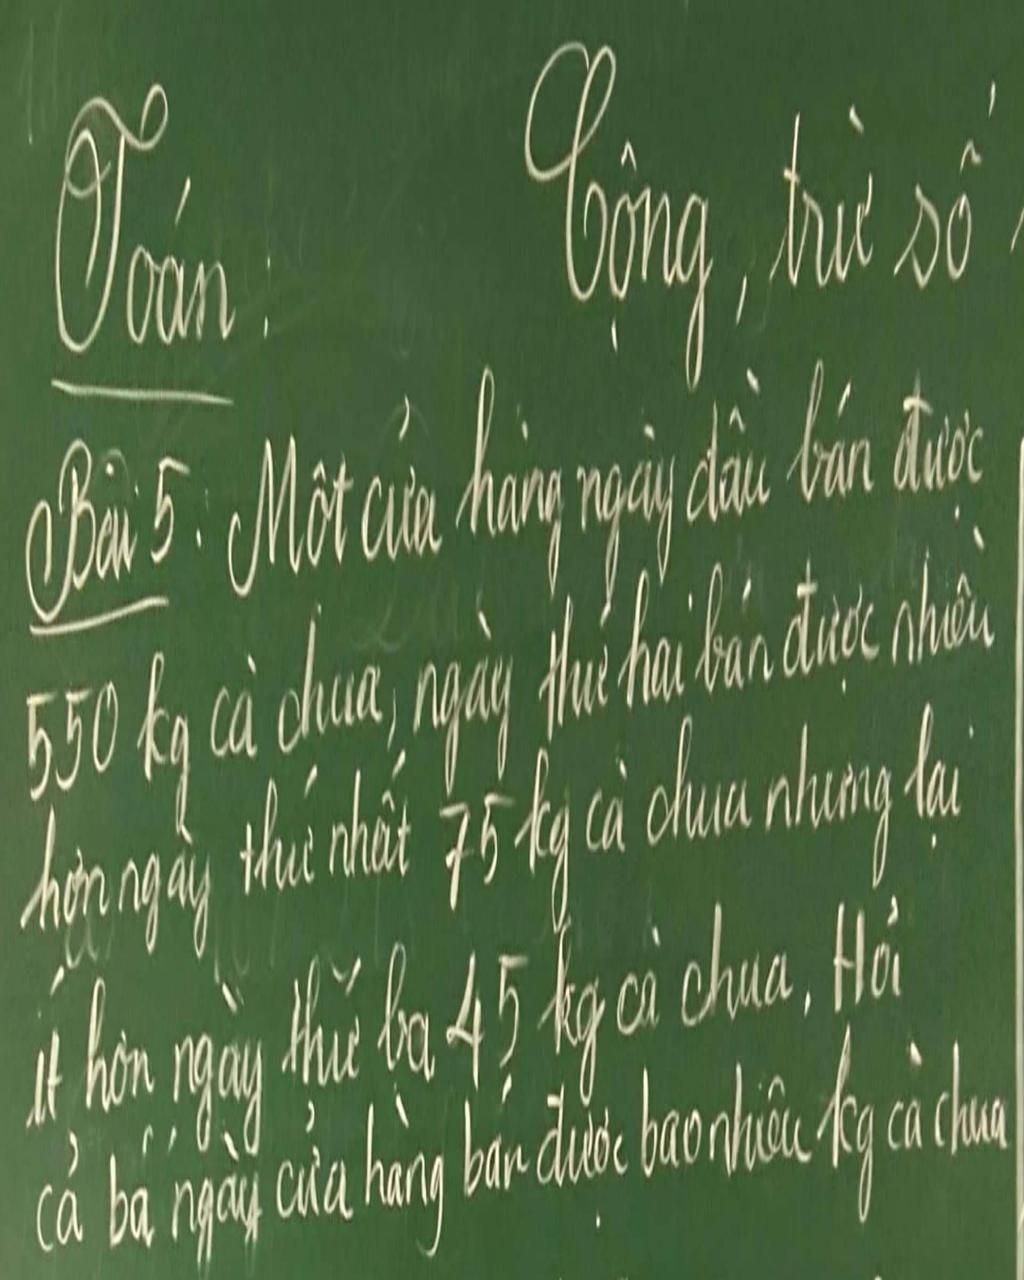 Toán: Cộng, trừ số
Bài 5: Một cửa hàng ngày đầu bán được
550 kg cà chua, ngày thứ hai bán được nhiều
hơn ngày thứ nhất 75 kg cà chua nhưng lại
ít hơn ngày thứ ba 45 kg cà chua. Hỏi
cả ba ngày cửa hàng bán được bao nhiêu kg cà chua